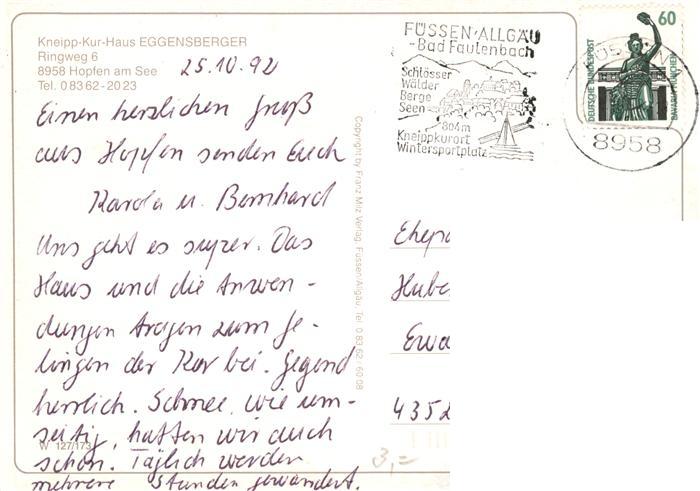 Kneipp-Kur-Haus EGGENSBERGER
Ringweg 6
8958 Hopfen am See
Tel. 0 83 62 - 20 23
25.10.92
Einen herzlichen Gruß
aus Hopfen senden Euch
Karola u. Bernhard
Uns geht es super. Das
Haus und die Anwen-
dungen tragen zum Ge-
lingen der Kur bei. Gegend
herrlich. Schnee, wie um-
seitig, hatten wir auch
schon. Täglich werden
mehrere Stunden gewandert.
W 127/173
Copyright by Franz Milz Verlag, Füssen/Allgäu, Tel. 0 83 62 / 60 08
FÜSSEN·ALLGÄU
-Bad Faulenbach
Schlösser
Wälder
Berge
Seen
804m
Kneippkurort
Wintersportplatz
60
DEUTSCHE BUNDESPOST
BAVARIA MÜNCHEN
8958
Ehepa
Hube
Ewa
4352
3,=